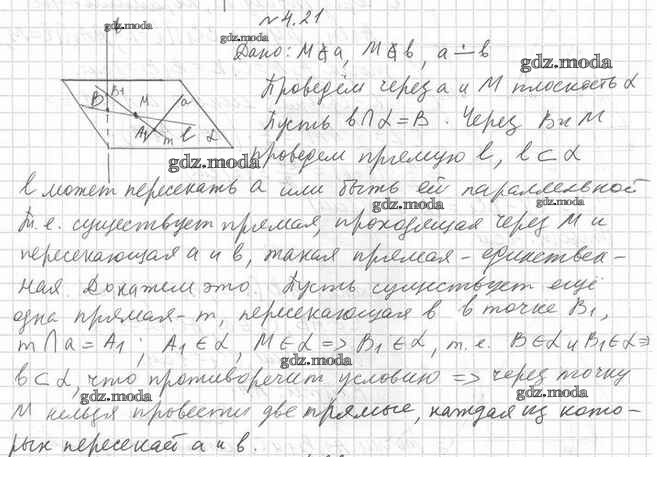 № 4.21
Дано: M ∉ a, M ∉ b, a ∸ b
Проведём через a и M плоскость α
Пусть b ∩ α = B. Через B и M
проведем прямую l, l ⊂ α
l может пересекать a или быть ей параллельной
Т.е. существует прямая, проходящая через M и
пересекающая a и b, такая прямая - единствен-
ная. Докажем это. Пусть существует ещё
одна прямая - m, пересекающая b в точке B₁,
m ∩ a = A₁; A₁ ∈ α, M ∈ α => B₁ ∈ α, т.е. B ∈ α и B₁ ∈ α =>
b ⊂ α, что противоречит условию => через точку
M нельзя провести две прямые, каждая из кото-
рых пересекает a и b.
B B₁ M a
A₁ m l α
gdz.moda
gdz.moda
gdz.moda
gdz.moda
gdz.moda
gdz.moda
gdz.moda
gdz.moda
gdz.moda